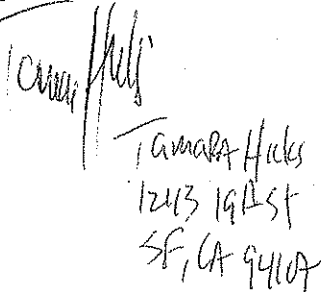 Tamara Hicks
1243 19th St
SF, CA 94107